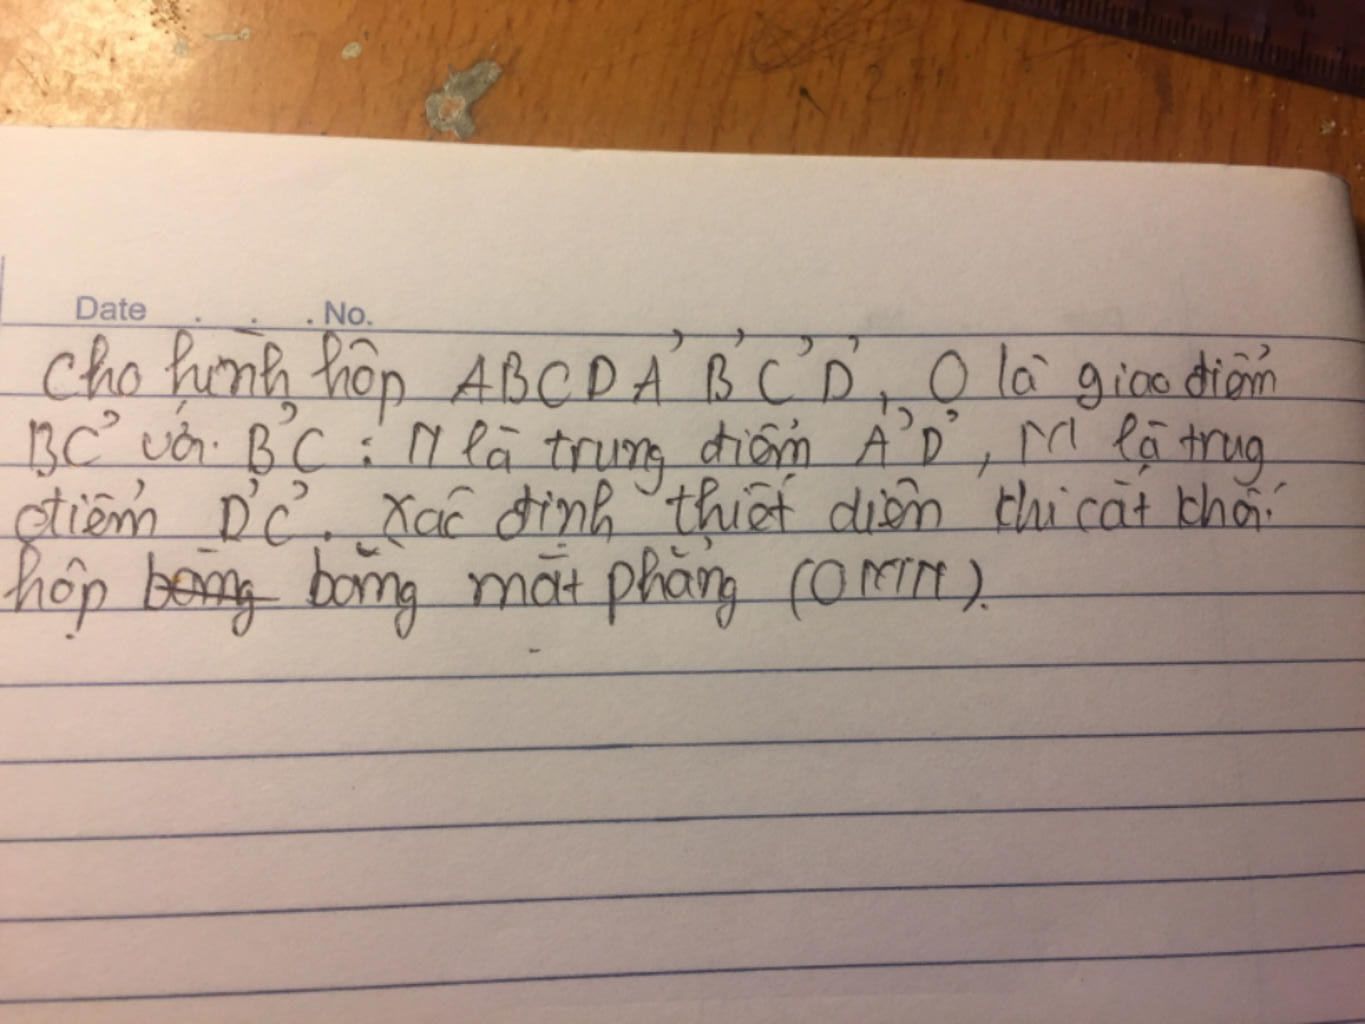 Date . . . No.
Cho hình hộp ABCDA'B'C'D', O là giao điểm
BC' với B'C : N là trung điểm A'D', M là trug
điểm D'C'. Xác định thiết diện khi cắt khối
hộp bằng bằng mặt phẳng (OMN).